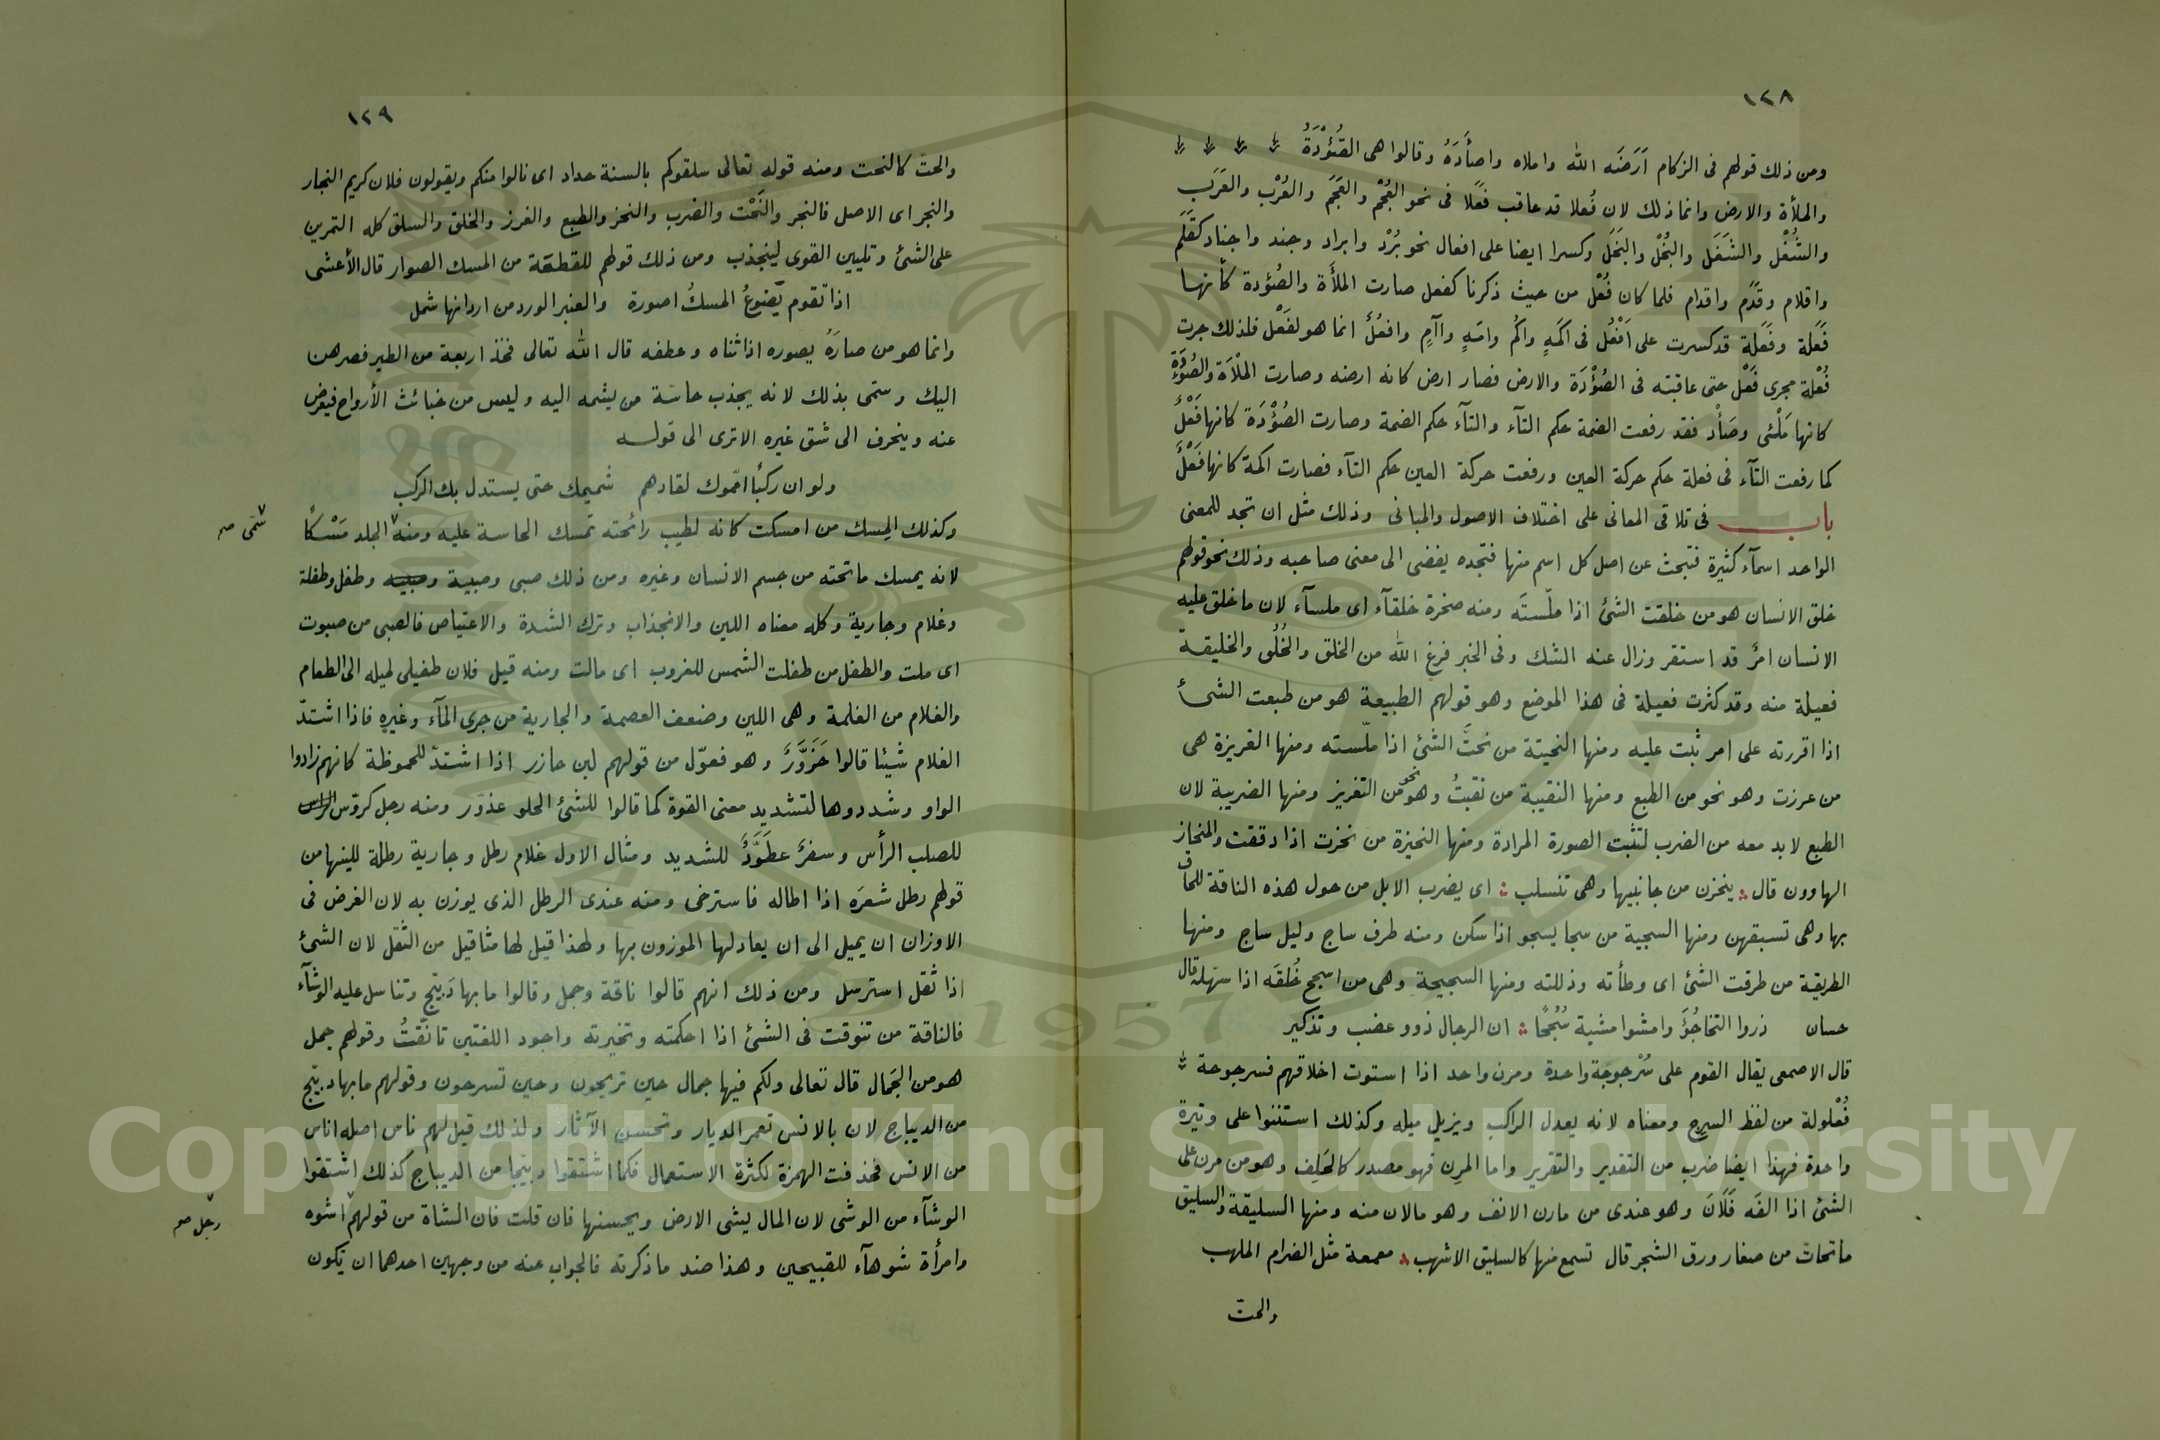 ١٢٨
ومن ذلك قولهم فى الزكام آرَضَه الله واملاه واصأَدَهُ وقالوا هى الضُؤْدَةُ
والملأة والارض وانما ذلك لان فُعلا قد عاقب فَعَلا فى نحو العُجْم والعَجَم والعُرْب والعَرَب
والشُغْل والشَغَل والبُخْل والبَخَل وكسرا ايضا على افعال نحو بُرْد وابراد وجند واجناد كقَلَم
واقلام وقَدَم واقدام فلما كان فُعْل من حيث ذكرنا كفعل صارت الملأة والضُؤدة كأنها
فَعَلة وفَعَلة قد كسرت على اَفْعُل فى اكَمَةٍ واكُم وامَةٍ وآآمٍ وافعُلٌ انما هو لفَعْل فلذلك جرت
فُعْلة مجرى فَعْل حتى عاقبته فى الضُؤْدَة والارض فصار ارض كانه ارضه وصارت الملْأَة والضُؤْدَة
كانها مَلْئى وضَأْد فقد رفعت الضمة حكم التآء والتآء حكم الضمة وصارت الضُؤْدَة كانها فَعْلٌ
كما رفعت التآء فى فعلة حكم حركة العين ورفعت حركة العين حكم التآء فصارت اكمة كانها فَعْلٌ
باب فى تلاقى المعانى على اختلاف الاصول والمبانى وذلك مثل ان تجد للمعنى
الواحد اسمآء كثيرة فتبحث عن اصل كل اسم منها فتجده يفضى الى معنى صاحبه وذلك نحو قولهم
خلق الانسان هو من خلقت الشئ اذا ملّستَه ومنه صخرة خلقآء اى ملسآء لان ما خلق عليه
الانسان امرٌ قد استقر وزال عنه الشك وفى الخبر فرغ الله من الخلق والخُلُق والخليقة
فعيلة منه وقد كثرت فعيلة فى هذا الموضع وهو قولهم الطبيعة هو من طبعت الشئ
اذا اقررته على امر ثبت عليه ومنها النحيتة من نحتَّ الشئ اذا ملّسته ومنها الغريزة هى
من غرزت وهو نحو من الطبع ومنها النقيبة من نقبتُ وهو نحو من التغريز ومنها الضريبة لان
الطبع لابد معه من الضرب لتثبت الصورة المرادة ومنها النحيزة من نحزت اذا دققت والمنحاز
الهاوون قال ينحزن من جانبيها وهى تنسلب اى يضرب الابل من حول هذه الناقة للحاق
بها وهى تسبقهن ومنها السجية من سجا يسجو اذا سكن ومنه طرف ساج وليل ساج ومنها
الطريقة من طرقت الشئ اى وطأته وذللته ومنها السجيحة وهى من اسجح خُلقَه اذا سهّله قال
حسان ذروا التخاجُؤَ وامشوا مشية سُجُحًا ان الرجال ذوو عضب وتذكير
قال الاصمعى يقال القوم على سُرْجوجَة واحدة ومرن واحد اذا استوت اخلاقهم فسرجوجة
فُعْلولة من لفظ السرج ومعناه لانه يعدل الراكب ويزيل ميله وكذلك استننوا على وتيرة
واحدة فهذا ايضا ضرب من التقدير والتقرير واما المرِن فهو مصدر كالحَلِف وهو من مرن على
الشئ اذا الفَه فَلَانَ وهو عندى من مارن الانف وهو مالان منه ومنها السليقة والسليق
ما تحات من صغار ورق الشجر قال تسمع منها كالسليق الاشهب معمعة مثل الضرام الملهب
والحت
١٢٩
والحتّ كالنحت ومنه قوله تعالى سلقوكم بالسنة حداد اى نالوا منكم ويقولون فلان كريم النجار
والنجر اى الاصل فالنجر والنَحْت والضرب والنحز والطبع والغرز والخلق والسلق كله التمرين
على الشئ وتليين القوى لينجذب ومن ذلك قولهم للقطعة من المسك الصوار قال الأعشى
اذا تقوم يَضوعُ المسكُ اصورة والعنبر الورد من اردانها شمل
وانما هو من صارَهُ يصوره اذا ثناه وعطفه قال الله تعالى فخذ اربعة من الطير فصرهن
اليك وسمّى بذلك لانه يجذب حاسّة من يشمه اليه وليس من خبائث الأرواح فيعرض
عنه وينحرف الى شق غيره الاترى الى قوله
ولو ان ركبًا امّموك لقادهم شميمك حتى يستدل بك الركب
وكذلك المِسك من امسكت كانه لطيب رائحته تمسك الحاسة عليه ومنه الجلد مَسْكًا
سُمّى صح
لانه يمسك ما تحته من جسم الانسان وغيره ومن ذلك صبى وصبية وصبيه وطفل وطفلة
وغلام وجارية وكله معناه اللين والانجذاب وترك الشدة والاعتياص فالصبى من صبوت
اى ملت والطفل من طفلت الشمس للغروب اى مالت ومنه قيل فلان طفيلى لميله الى الطعام
والغلام من الغلمة وهى اللين وضعف العصمة والجارية من جرى المآء وغيره فاذا اشتدّ
الغلام شيئا قالوا حَزَوَّرٌ وهو فعوّل من قولهم لبن حازر اذا اشتدّ للحموظة كانهم زادوا
الواو وشددوها لتشديد معنى القوة كما قالوا للشئ الحلو عذوّر ومنه رجل كروّس الراس
للصلب الرأس وسفرٌ عطَوَّدٌ للشديد ومثال الاول غلام رطل وجارية رطلة للينها من
قولهم رطل شعرَه اذا اطاله فاسترخى ومنه عندى الرطل الذى يوزن به لان الغرض فى
الاوزان ان يميل الى ان يعادلها الموزون بها ولهذا قيل لها مثاقيل من الثقل لان الشئ
اذا ثقل استرسل ومن ذلك انهم قالوا ناقة وجمل وقالوا ما بها دَبيّج وتناسل عليه الوشآء
فالناقة من تنوقت فى الشئ اذا احكمته وتخيرته واجود اللغتين تانّقتُ وقولهم جمل
هو من الجَمال قال تعالى ولكم فيها جمال حين تريحون وحين تسرحون وقولهم ما بها دبيّج
من الديباج لان بالانس تعمر الديار وتحسن الآثار ولذلك قيل لهم ناس اصله اناس
من الانس فحذفت الهمزة لكثرة الاستعمال فكما اشتقوا دبيّجا من الديباج كذلك اشتقوا
الوشآء من الوشى لان المال يشى الارض ويحسنها فان قلت فان الشاة من قولهم اشوه
رجل صح
وامرأة شوهآء للقبيحين وهذا ضد ما ذكرته فالجواب عنه من وجهين احدهما ان يكون
1957
Copyright © King Saud University